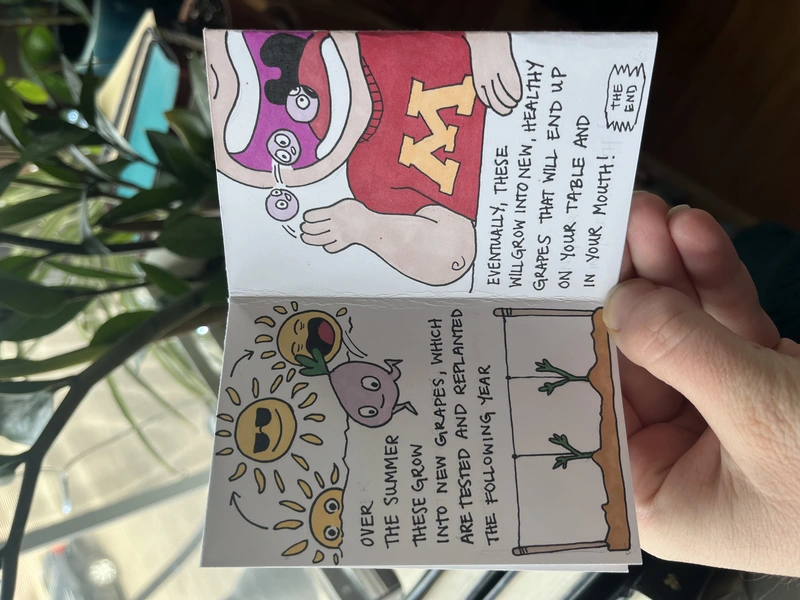 OVER
THE SUMMER
THESE GROW
INTO NEW GRAPES, WHICH
ARE TESTED AND REPLANTED
THE FOLLOWING YEAR
M
EVENTUALLY, THESE
WILL GROW INTO NEW, HEALTHY
GRAPES THAT WILL END UP
ON YOUR TABLE AND
IN YOUR MOUTH!
THE
END